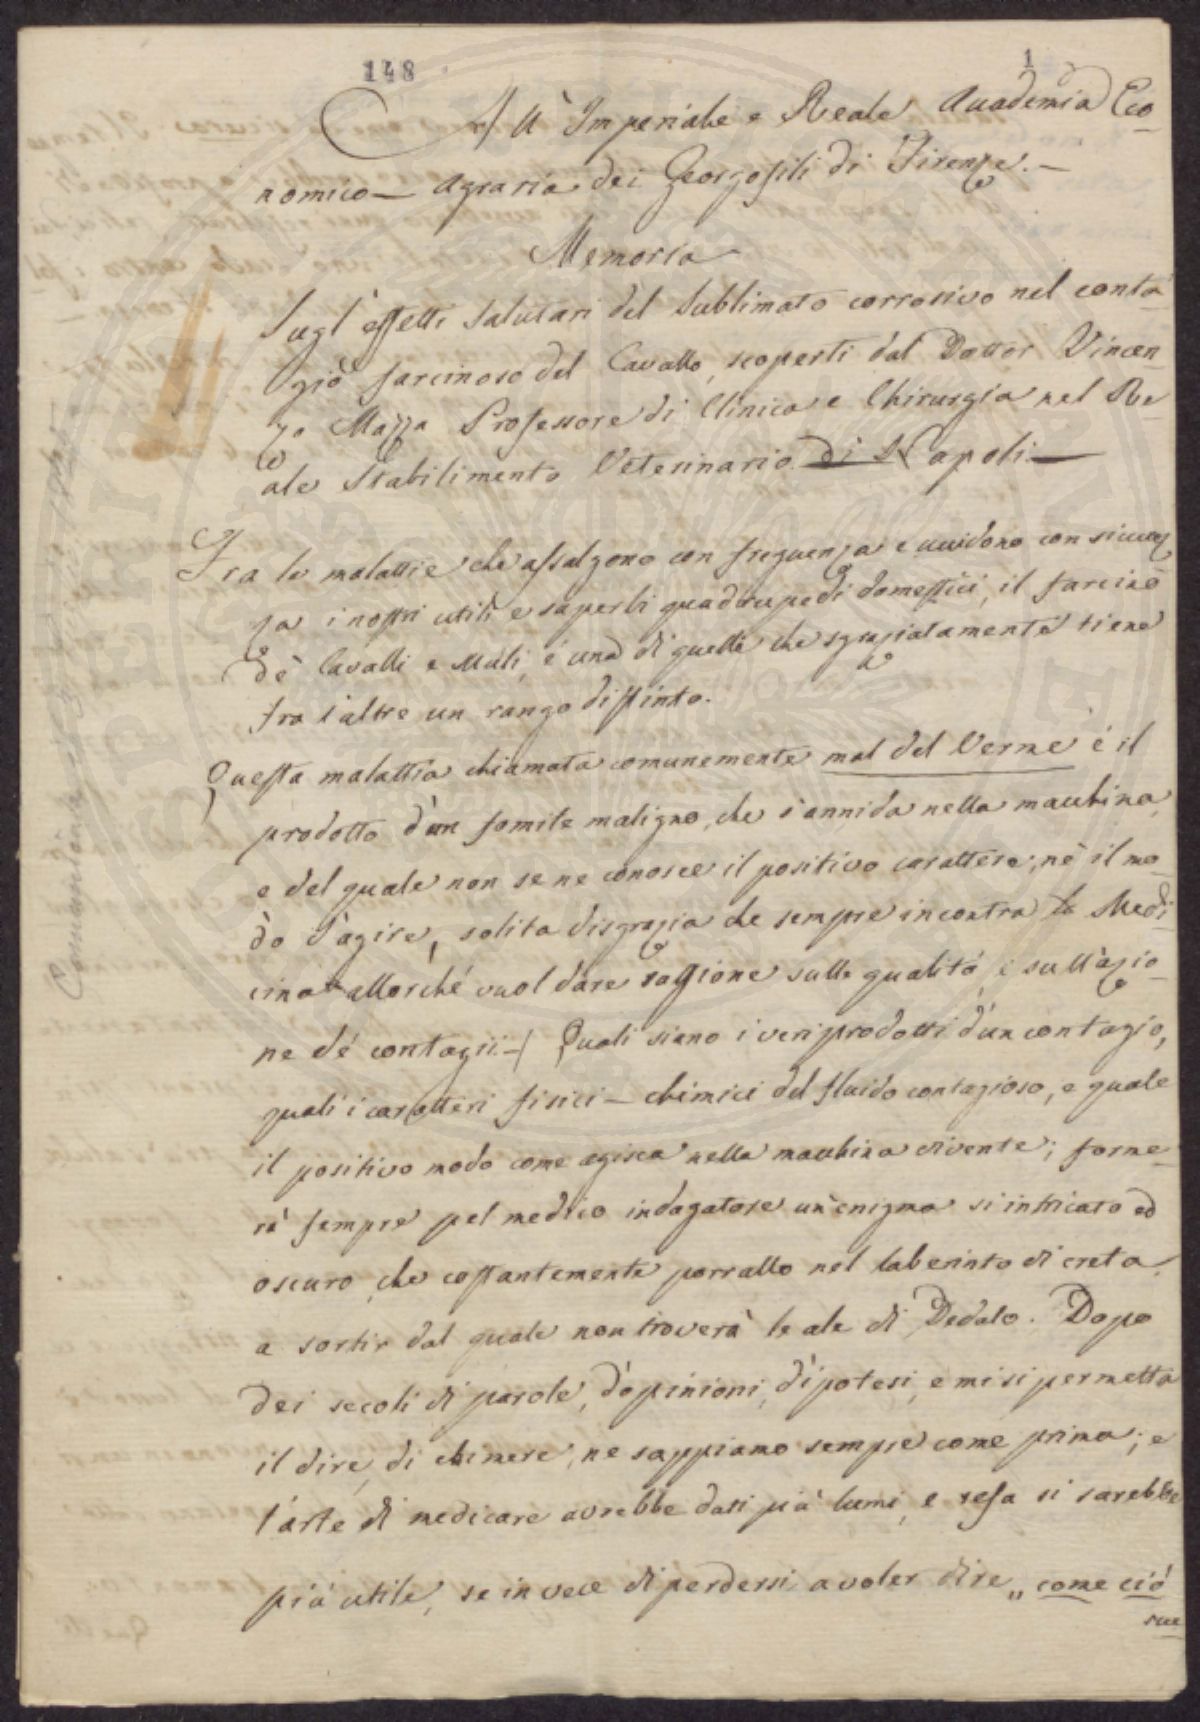 148
1
All' Imperiale e Reale Accademia Eco-
nomico — Agraria dei Georgofili di Firenze. —
Memoria
Sugl' effetti salutari del Sublimato corrosivo nel conta-
gio farcinoso del Cavallo, scoperti dal Dottor Vincen-
zo Mazza Professore di Clinica e Chirurgia nel Re-
ale Stabilimento Veterinario di Napoli —
Fra le malattie che assalgono con frequenza e uccidono con sicurez-
za i nostri utili e superbi quadrupedi domestici, il farcino
de' Cavalli e Muli, è una di quelle che sgraziatamente tiene
fra l'altre un rango distinto.
Questa malattia chiamata comunemente mal del Verme è il
prodotto d'un fomite maligno, che s'annida nella macchina,
e del quale non se ne conosce il positivo carattere, nè il mo-
do d'agire, solita disgrazia che sempre incontra la Medi-
cina allorché vuol dare raggione sulla qualità, e sull'azio-
ne de' contagii. — Quali siano i veri prodotti d'un contagio,
quali i caratteri fisici — chimici del fluido contagioso, e quale
il positivo modo come agisca nella macchina vivente; forme-
rà sempre pel medico indagatore un'enigma si intricato ed
oscuro che costantemente porrallo nel laberinto di creta
a sortir dal quale non troverà le ale di Dedalo. Dopo
dei secoli di parole, d'opinioni, d'ipotesi, e mi si permetta
il dire, di chimere, ne sappiamo sempre come prima; e
l'arte di medicare avrebbe dati più lumi, e resa si sarebbe
più utile, se in vece di perdersi a voler dire „ come ciò
suc
Comunicazione